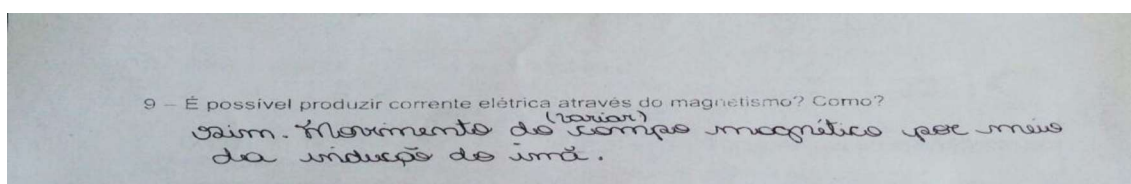 9 – É possível produzir corrente elétrica através do magnetismo? Como?
(variar)
sim. Movimento do campo magnético por meio
da indução do imã.